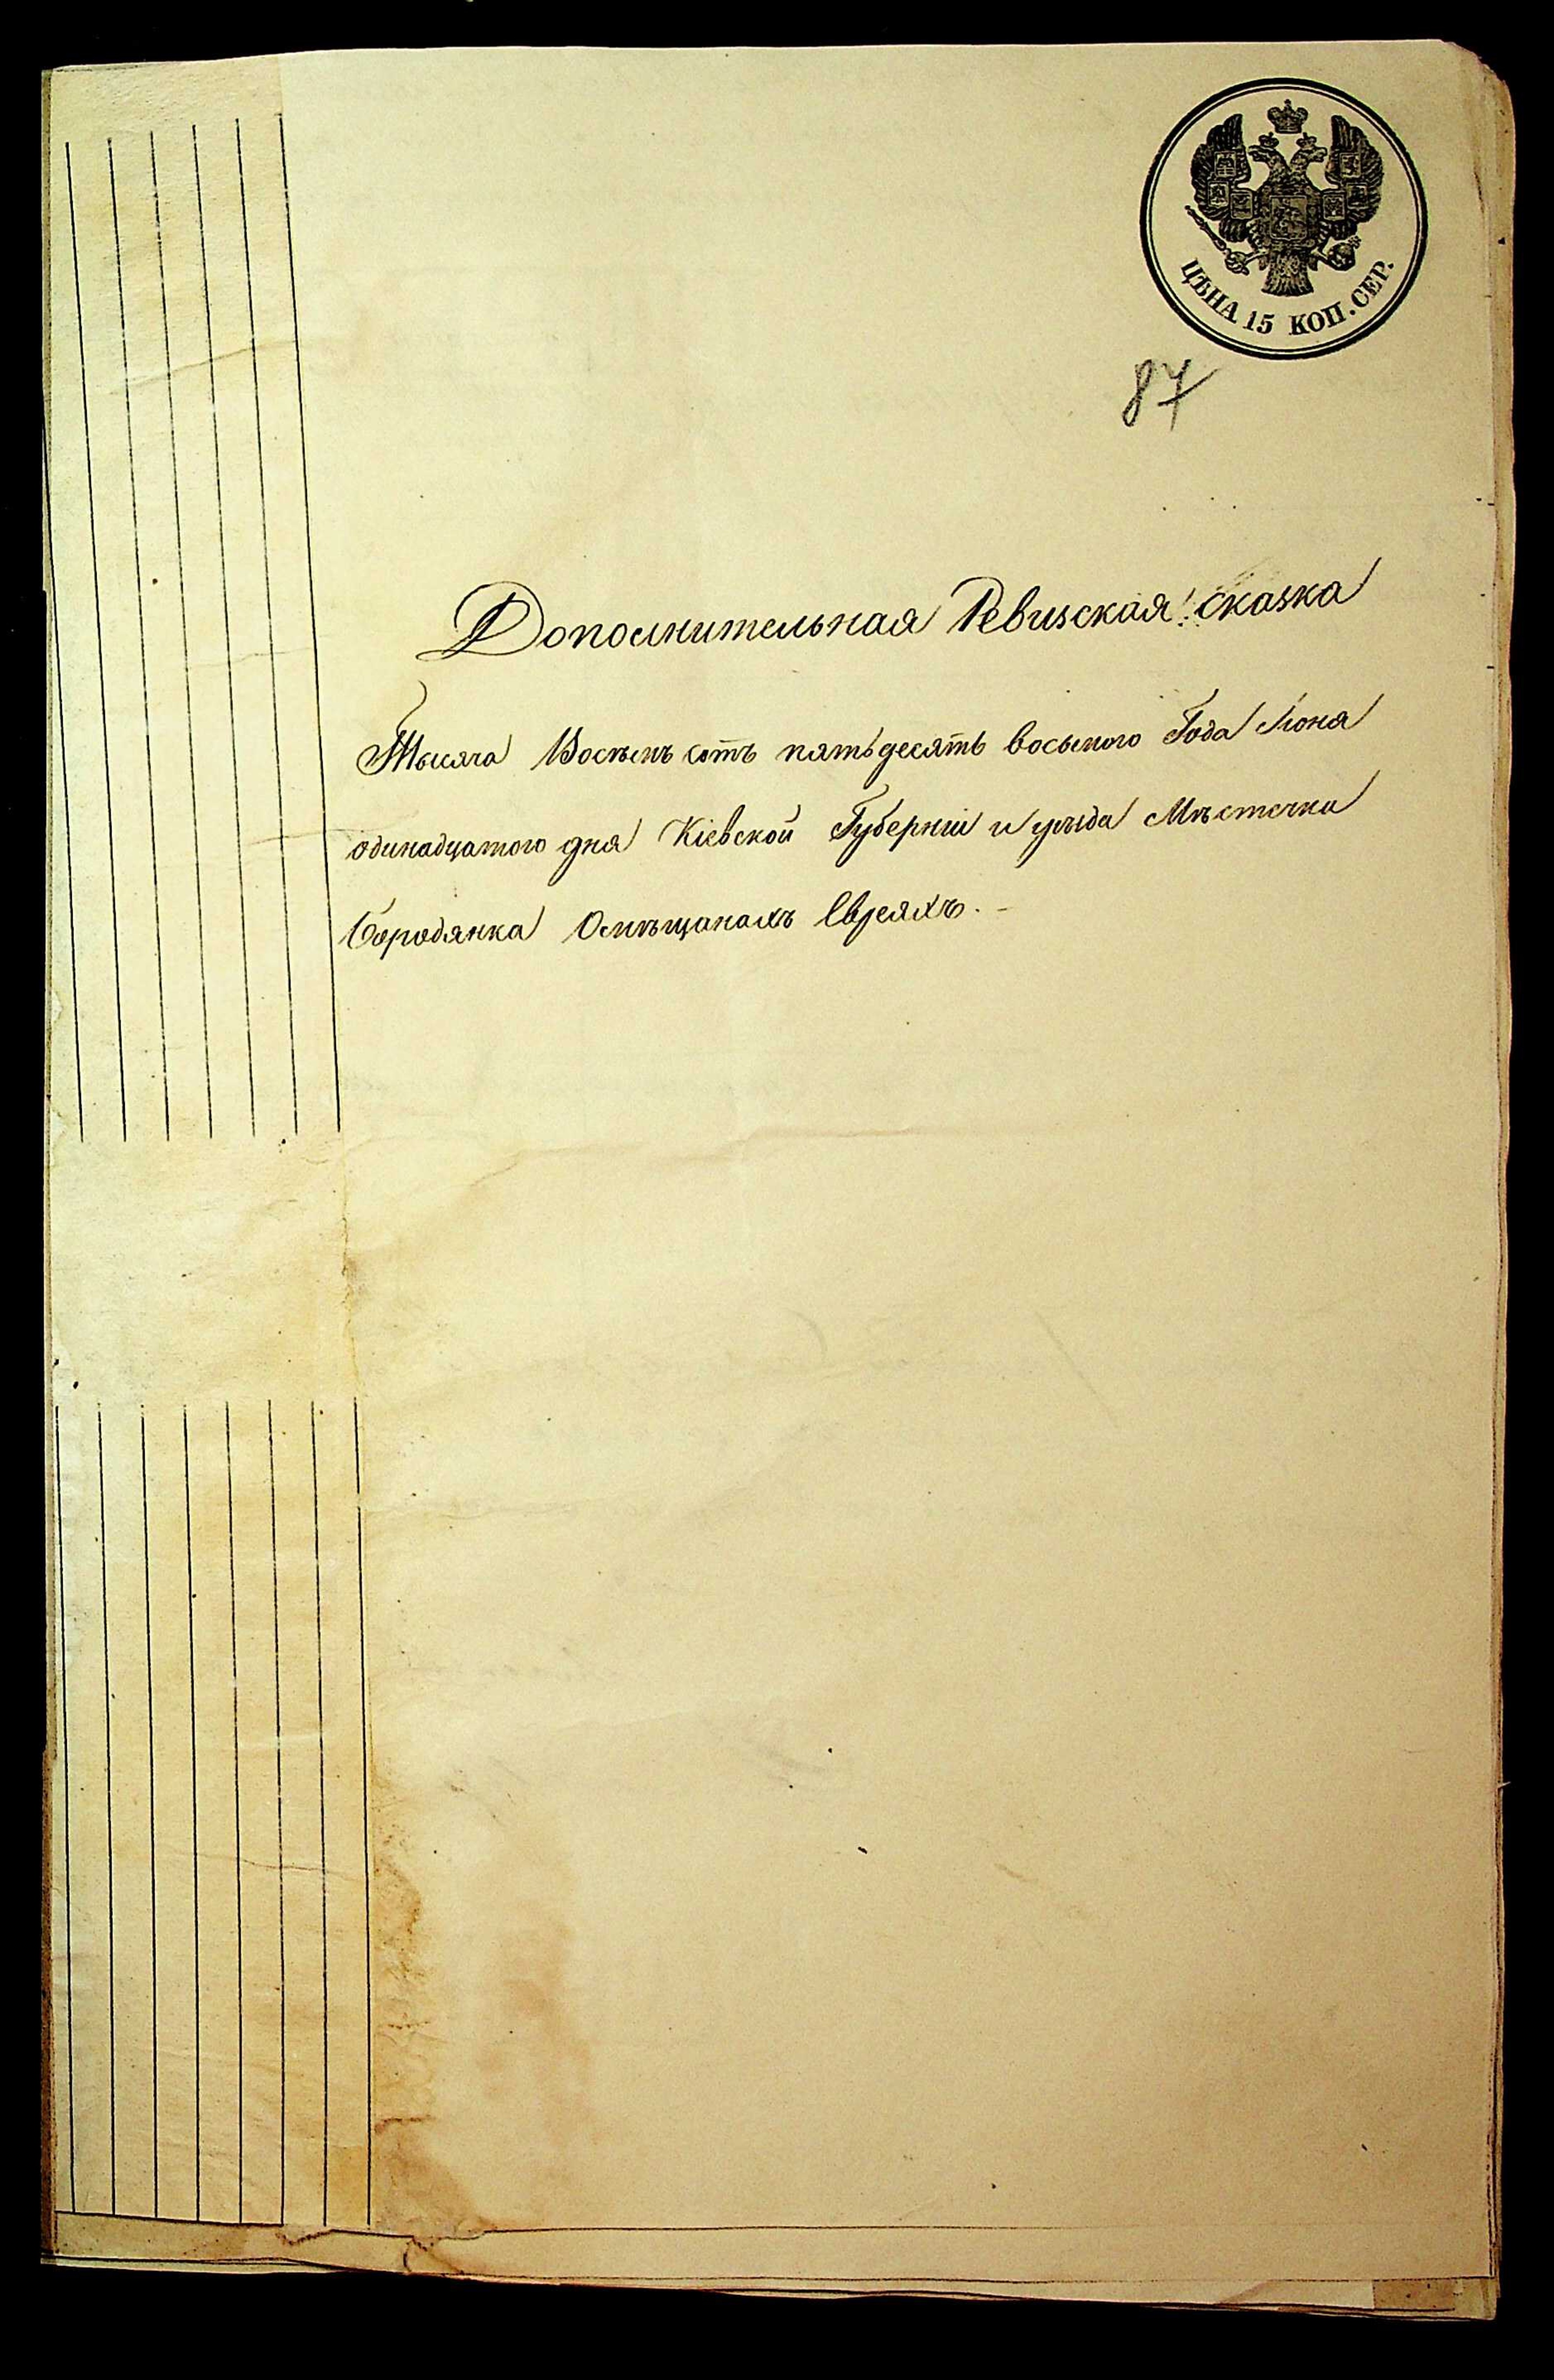 ЦѢНА 15 КОП. СЕР.
87
Дополнительная Ревизская сказка
Тысяча Восѣмь сотъ пятьдесять восьмого Года Іюня
одинадцатого дня Кіевской Губерніи и уѣзда Мѣстечка
Бородянка Омѣщанахъ Евреяхъ.-